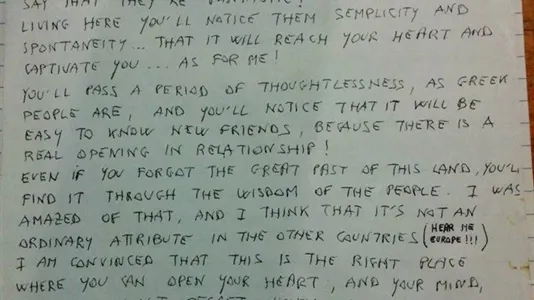 SAY THAT THEY'RE FANTASTIC!
LIVING HERE YOU'LL NOTICE THEM SEMPLICITY AND
SPONTANEITY... THAT IT WILL REACH YOUR HEART AND
CAPTIVATE YOU... AS FOR ME!
YOU'LL PASS A PERIOD OF THOUGHTLESSNESS, AS GREEK
PEOPLE ARE, AND YOU'LL NOTICE THAT IT WILL BE
EASY TO KNOW NEW FRIENDS, BECAUSE THERE IS A
REAL OPENING IN RELATIONSHIP!
EVEN IF YOU FORGOT THE GREAT PAST OF THIS LAND, YOU'LL
FIND IT THROUGH THE WISDOM OF THE PEOPLE. I WAS
AMAZED OF THAT, AND I THINK THAT IT'S NOT AN
ORDINARY ATTRIBUTE IN THE OTHER COUNTRIES (HEAR ME EUROPE!!!)
I AM CONVINCED THAT THIS IS THE RIGHT PLACE
WHERE YOU CAN OPEN YOUR HEART, AND YOUR MIND,